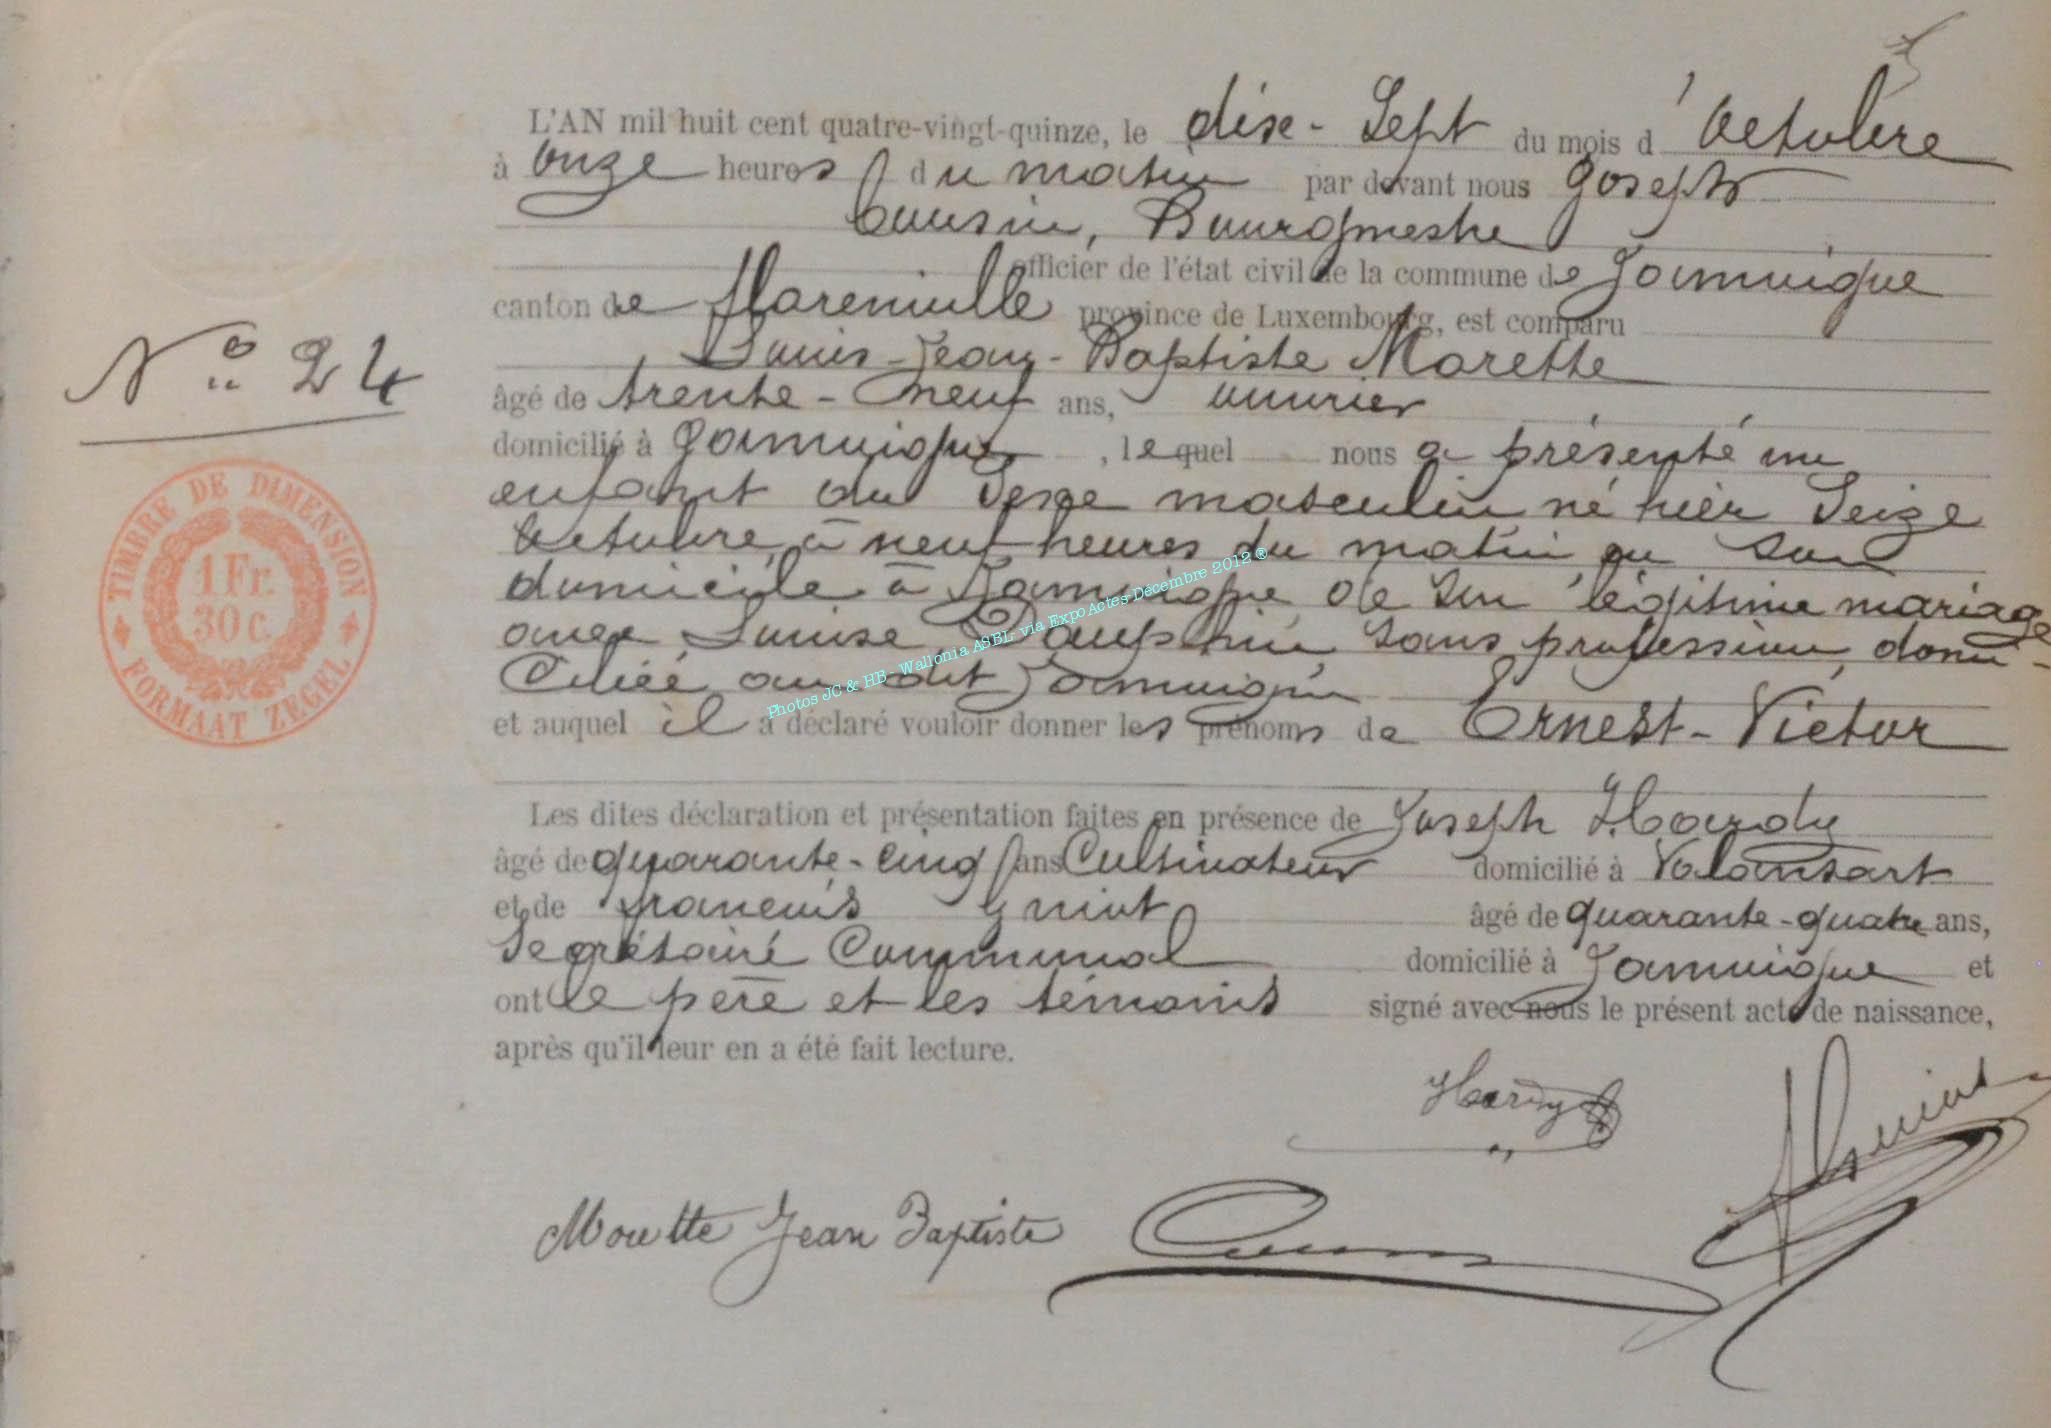 L'AN mil huit cent quatre-vingt-quinze, le dix-Sept du mois d'Octobre
à Onze heures du matin par devant nous Joseph
Cousin, Bourgmestre
officier de l'état civil de la commune de Jamoigne
canton de Florenville province de Luxembourg, est comparu
Louis-Jean-Baptiste Morette
âgé de trente-neuf ans, ouvrier
domicilié à Jamoigne, lequel nous a présenté un
enfant du Sexe masculin né hier Seize
Octobre à neuf heures du matin en Son
domicile à Jamoigne de Son légitime mariage
avec Louise Dauphin, Sans profession, domi-
Ciliée au dit Jamoigne
et auquel il a déclaré vouloir donner les prénoms de Ernest-Victor
Les dites déclaration et présentation faites en présence de Joseph Hardy
âgé de quarante-cinq ans Cultivateur domicilié à Valansart
et de françois âgé de quarante-quatre ans,
Secrétaire Communal domicilié à Jamoigne et
ont le père et les témoins signé avec nous le présent acte de naissance,
après qu'il leur en a été fait lecture.
No 24
TIMBRE DE DIMENSION
1 Fr.
30 c.
FORMAAT ZEGEL
Photos JC & HB - Wallonia ASBL- via ExpoActes-Décembre 2012 ®
Hardy
Jean Baptiste